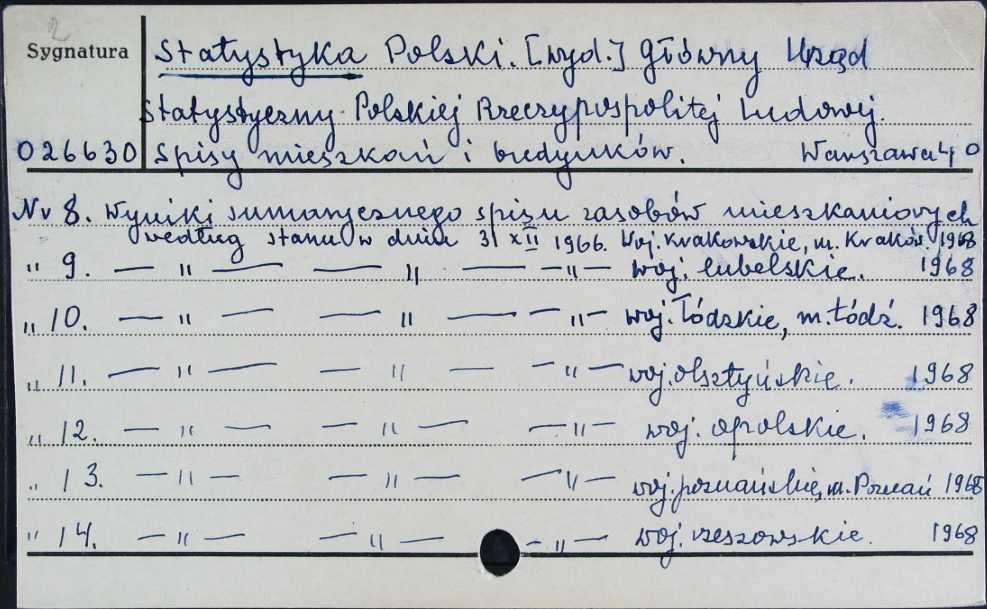 2
Sygnatura Statystyka Polski. [wyd.] Główny Urząd
Statystyczny Polskiej Rzeczypospolitej Ludowej.
026630 Spisy mieszkań i budynków. Warszawa 40
Nr 8. Wyniki sumarycznego spisu zasobów mieszkaniowych
według stanu w dniu 31 XII 1966. Woj. krakowskie, m. Kraków. 1968
" 9. — " — — " — — " — woj. lubelskie. 1968
" 10. — " — — " — — " — woj. łódzkie, m. Łódź. 1968
" 11. — " — — " — — " — woj. olsztyńskie. 1968
" 12. — " — — " — — " — woj. opolskie. 1968
" 13. — " — — " — — " — woj. poznańskie, m. Poznań 1968
" 14. — " — — " — — " — woj. rzeszowskie. 1968